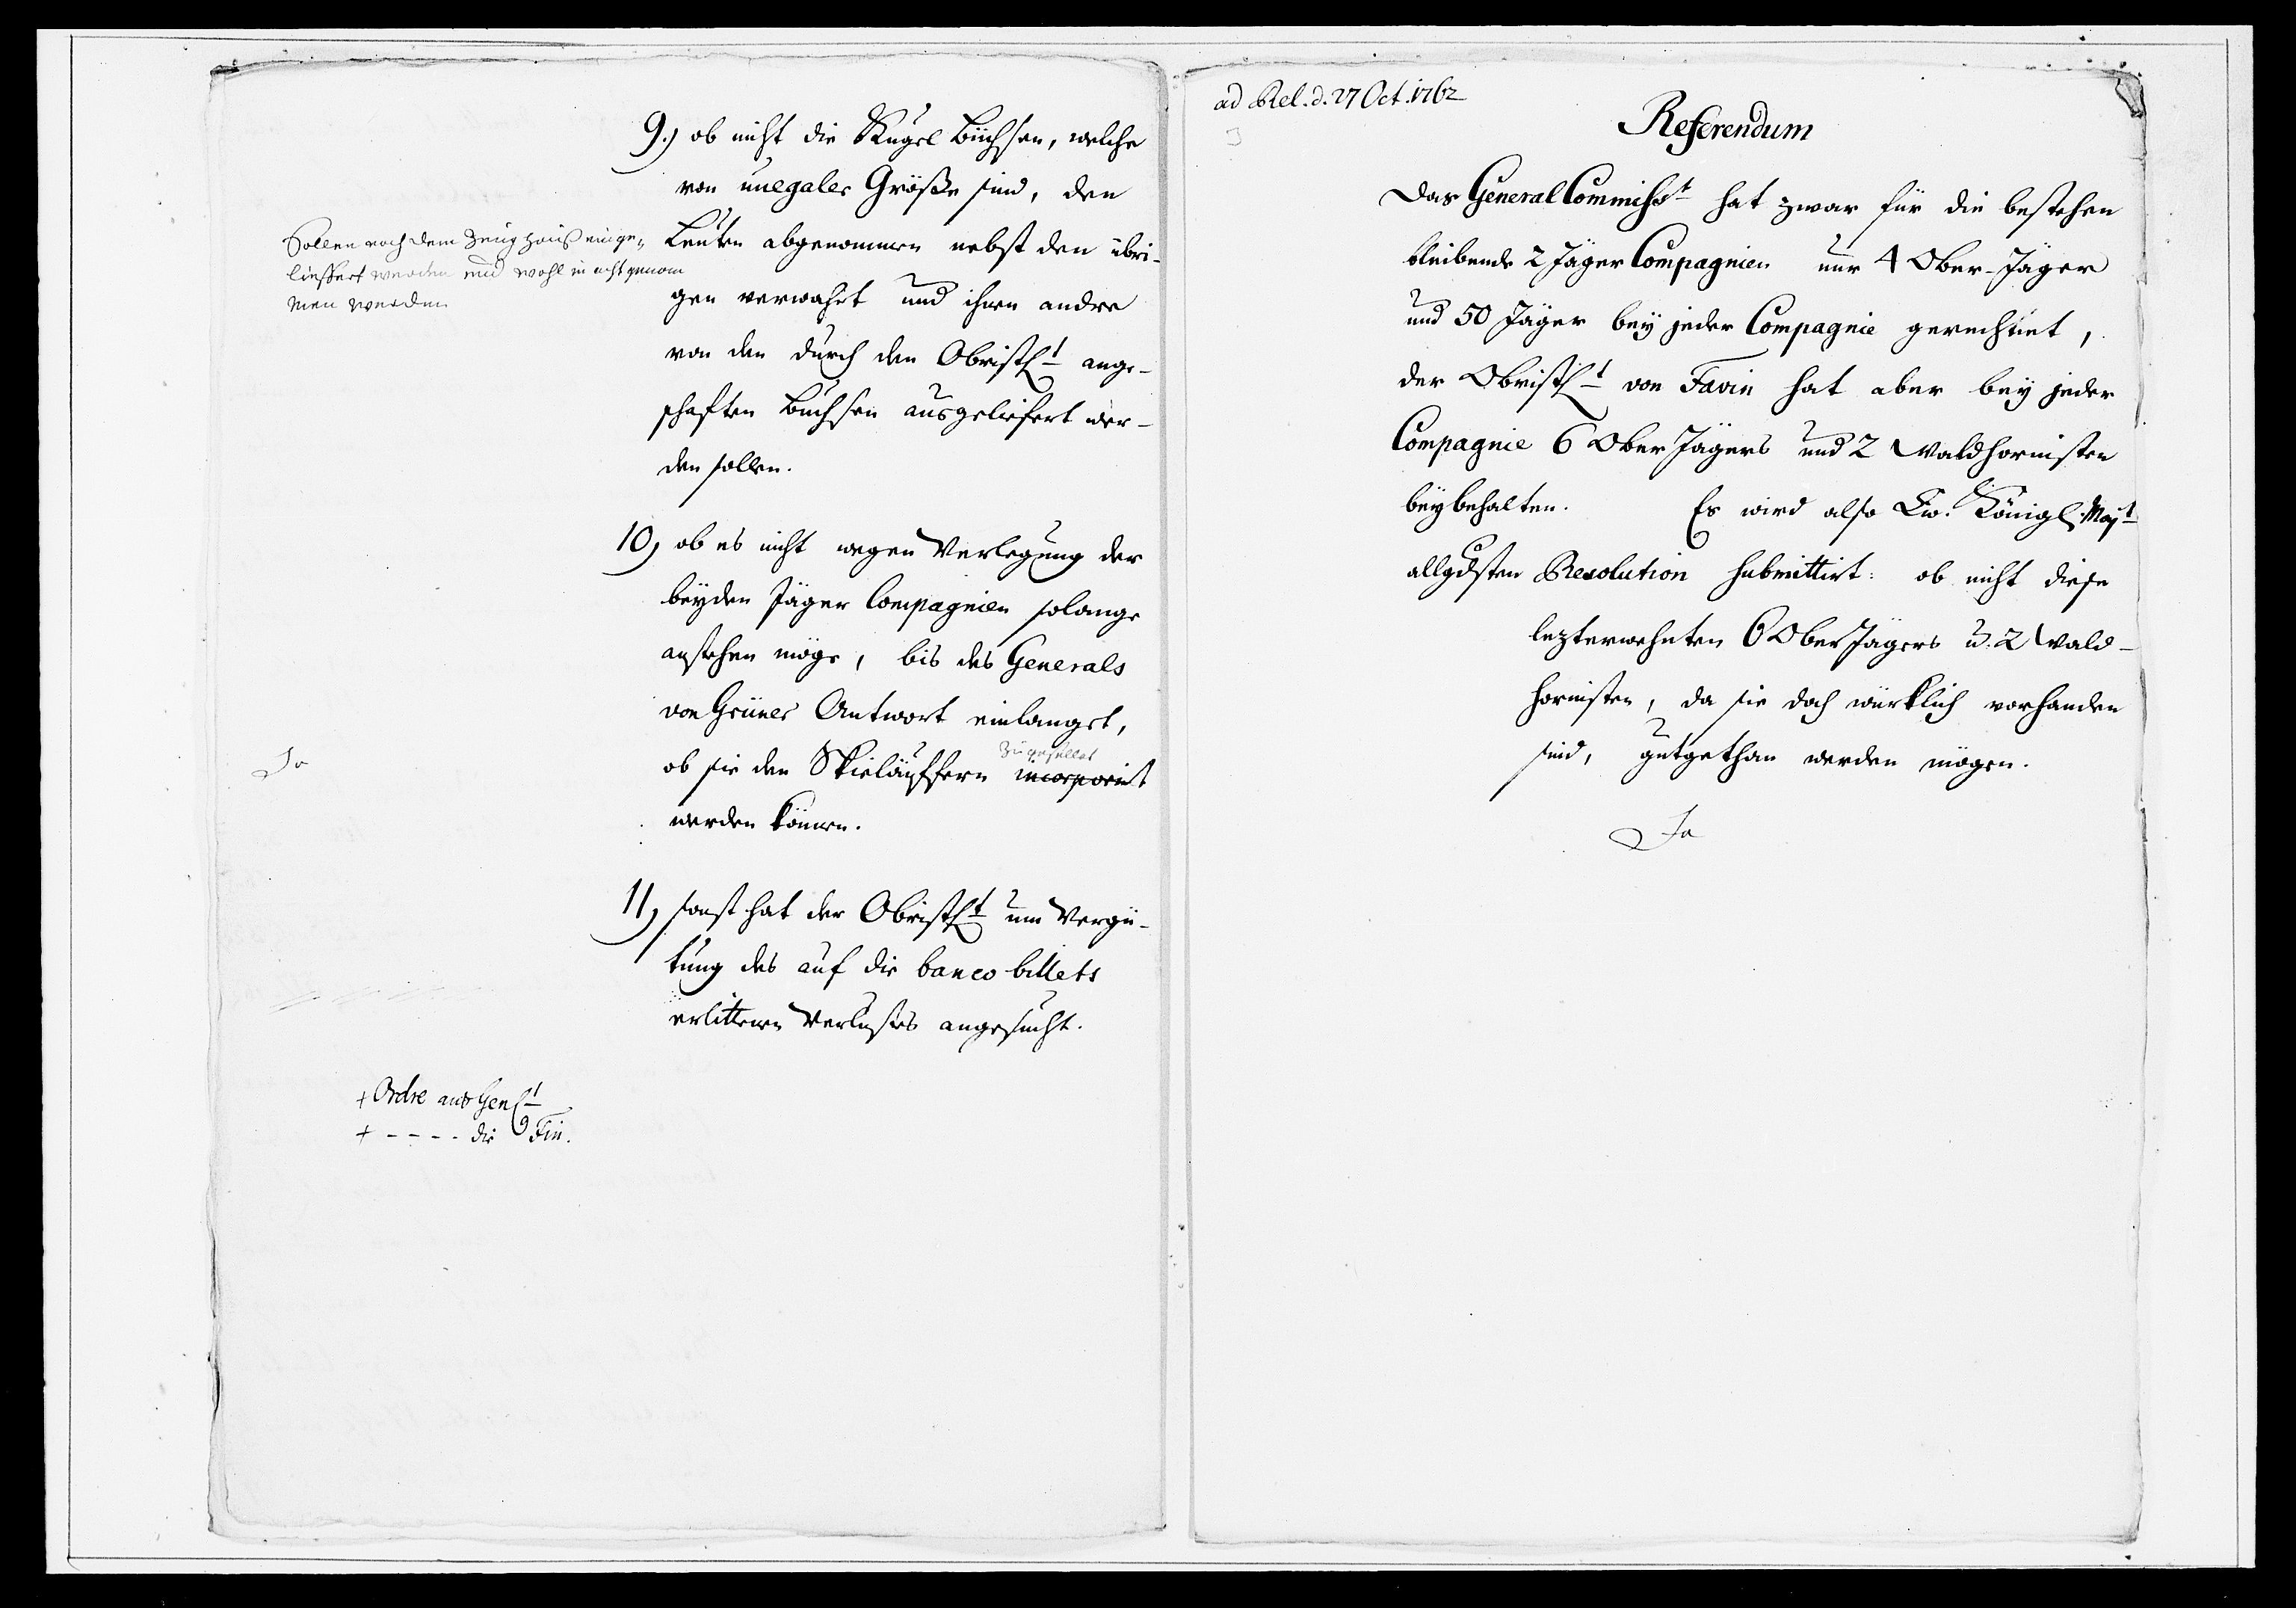 9.) ob nicht die Kugel Büchsen, welche
von unegaler Größe sind, den
Leuten abgenommen nebst den übri-
gen verwahrt und ihnen andre
von den durch den Obristlt ange-
schaften Buchsen ausgeliefert wer-
den sollen.
Sollen nach dem Zeughauß einge-
lieffert werden und wohl in acht genom
men werden
10) ob es nicht wegen Verlegung der
beyden Jäger Compagnien solange
anstehen möge, bis des Generals
von Grüner Antwort einlanget,
ob sie den Skieläuffern incorporirt zugesellet
werden können.
Ja
11) sonst hat der Obristlt um Vergü-
tung des auf die banco billets
erlittenen Verlustes angesucht.
+ Ordre ans Genlt
+ - - - - die Fin.
ad Rel. d. 27 Oct. 1762
Referendum
Das General Commisst hat zwar für die bestehen
bleibende 2 Jäger Compagnien nur 4 Ober-Jäger
und 50 Jäger bey jeder Compagnie gerechnet,
der Obristlt von Favin hat aber bey jeder
Compagnie 6 Ober Jägers und 2 Waldhornisten
beybehalten. Es wird also Ew. Königl. Majt
allgdsten Resolution submittirt: ob nicht diese
lezterwehnten 6 Ober Jägers u. 2 Wald-
hornisten, da sie doch würklich vorhanden
sind, gutgethan werden mögen.
Ja